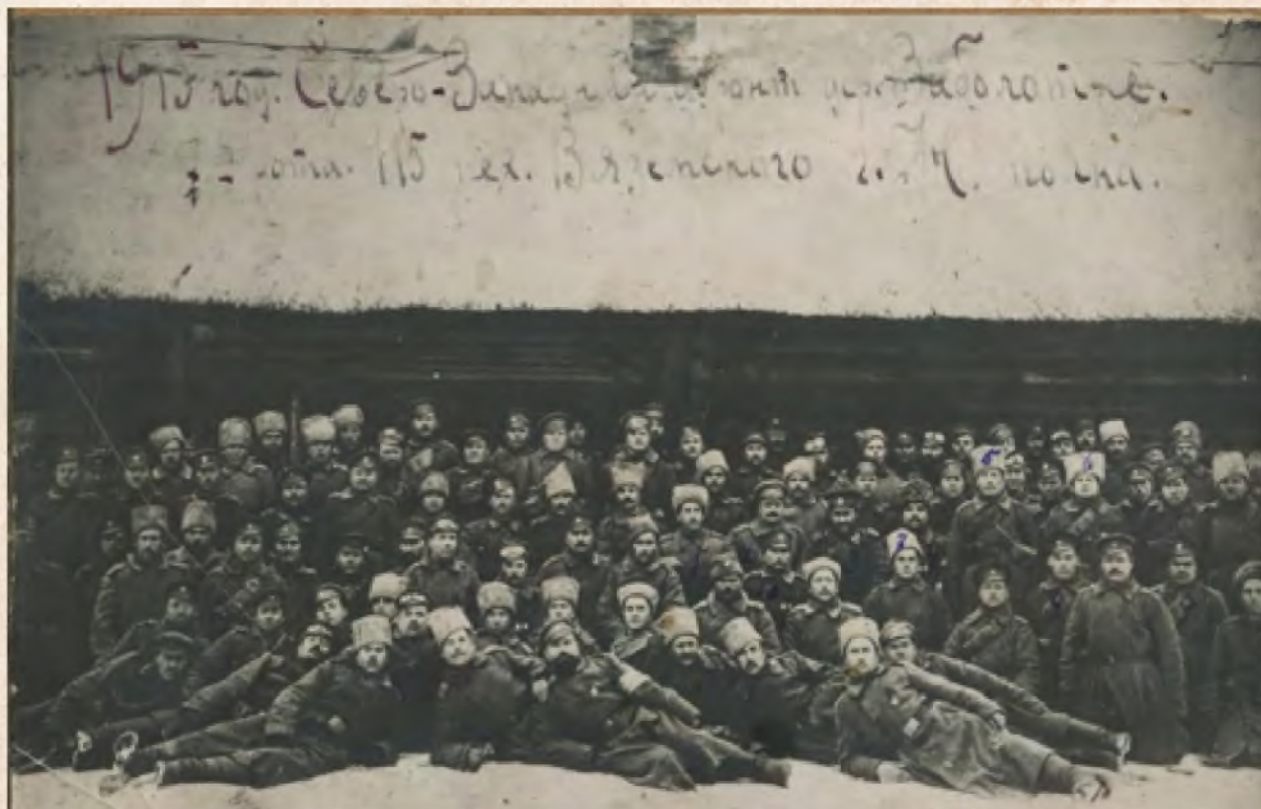 1915 год. Северо-Западный фронт дер. Заболотье.
рота. 115 пех. Вяземского полка.